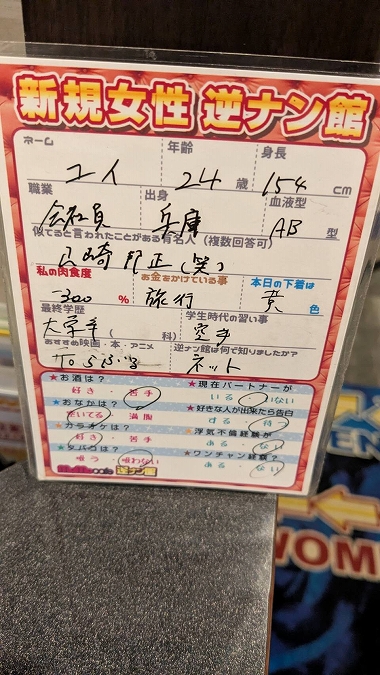 新規女性 逆ナン館
ネーム 年齢 身長
ユイ 24 歳 154 cm
職業 出身 血液型
会社員 兵庫 AB 型
似てると言われたことがある有名人(複数回答可)
山崎邦正(笑)
私の肉食度 お金をかけている事 本日の下着は
-300 % 旅行 黄 色
最終学歴 学生時代の習い事
大学卒 ( 科) 空手
おすすめ映画・本・アニメ 逆ナン館は何で知りましたか?
ネット
★お酒は? ★現在パートナーが
好き・苦手 いる・いない
★おなかは? ★好きな人が出来たら告白
空いてる・満腹 する・待つ
★カラオケは? ★浮気不倫経験が
好き・苦手 ある・ない
★タバコは? ★ワンチャン経験?
吸う・吸わない ある・ない
逆ナン館
EN
WOM